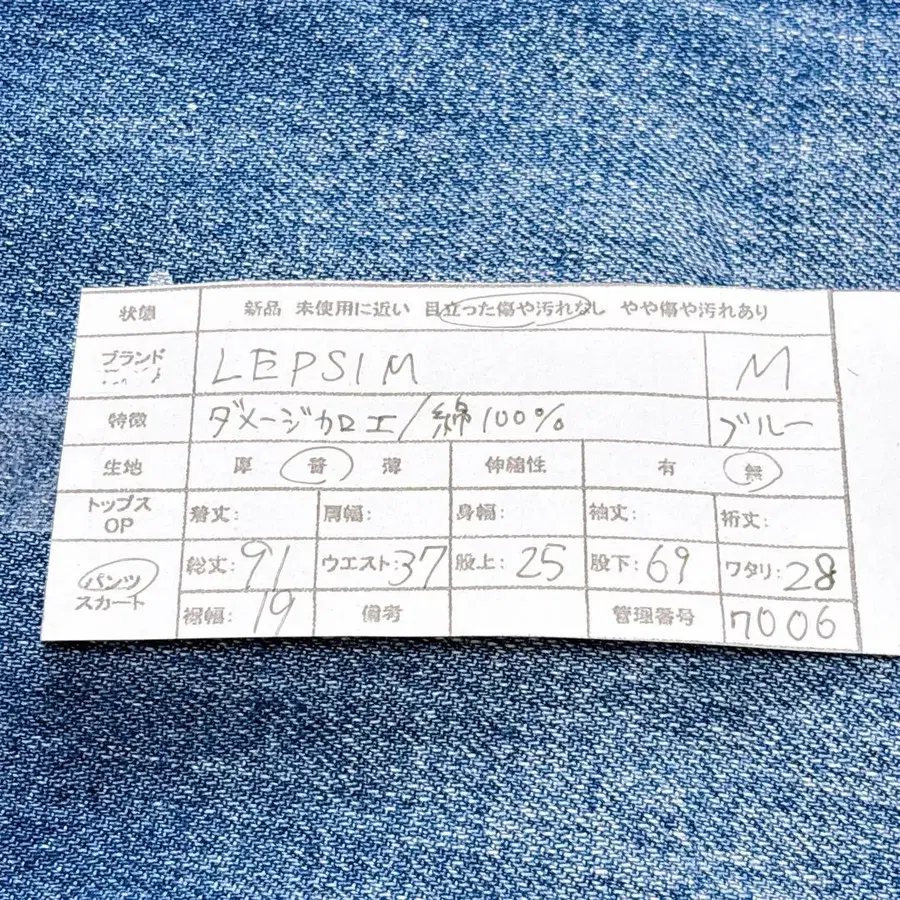 状態 新品 未使用に近い 目立った傷や汚れなし やや傷や汚れあり
ブランド LEPSIM M
特徴 ダメージカロエ/綿100% ブルー
生地 厚 普 薄 伸縮性 有 無
トップス OP 着丈: 肩幅: 身幅: 袖丈: 裄丈:
パンツ スカート 総丈: 91 ウエスト: 37 股上: 25 股下: 69 ワタリ: 28
裾幅: 19 備考 管理番号 7006